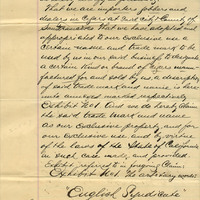 That we are importers jobbers and
dealers in Cigars at said City & County of
San Francisco That we have adopted and
appropriated to our exclusive use a
certain name and trade mark to be
used by us in our said business to designate
a certain kind or brand of Cigars manu-
factured for and sold by us, a description
of said trade mark and name, is here
unto annexed marked, respectively
Exhibit No 1. And we do hereby claim
the said trade mark and name
as our exclusive property and for
our exclusive use and by virtue
of the laws of the State of California
in such case made and provided.
Exhibit referred to in foregoing Claim.
Exhibit No 1. The arbitrary words
"English Syndicate"